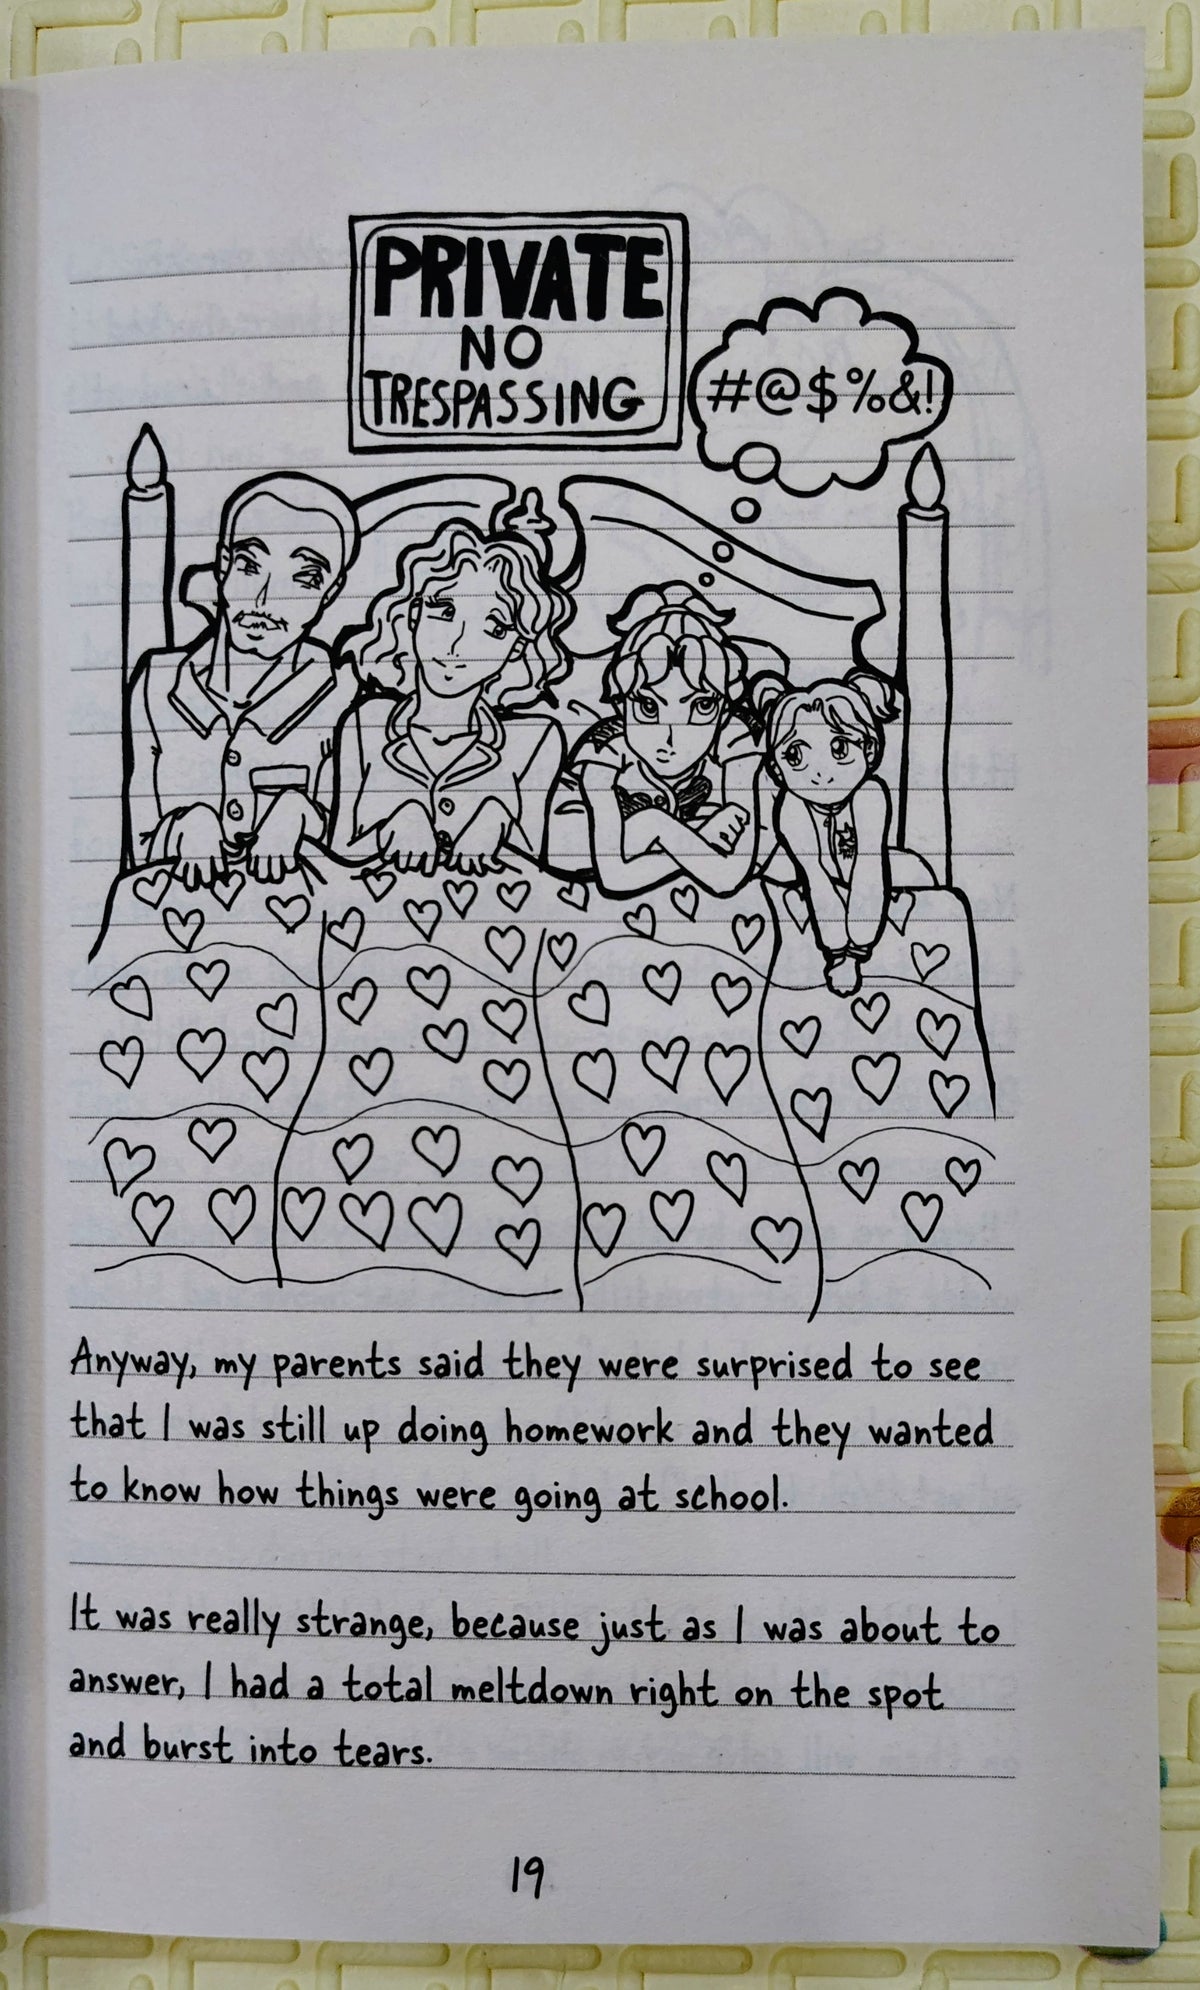 PRIVATE
NO
TRESPASSING
#@$%&!
Anyway, my parents said they were surprised to see
that I was still up doing homework and they wanted
to know how things were going at school.
It was really strange, because just as I was about to
answer, I had a total meltdown right on the spot
and burst into tears.
19